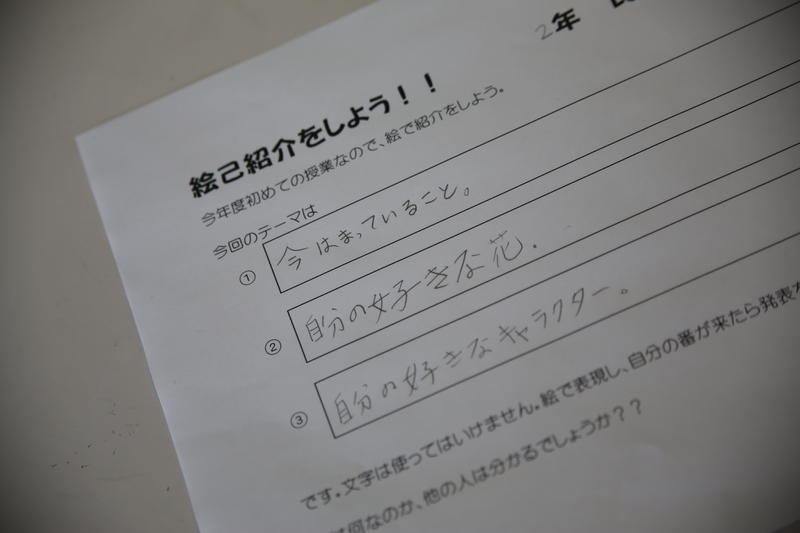 2年
絵己紹介をしよう！！
今年度初めての授業なので、絵で紹介をしよう。
今回のテーマは
① 今はまっていること。
② 自分の好きな花.
③ 自分の好きなキャラクター。
です。文字は使ってはいけません。絵で表現し、自分の番が来たら発表を
何なのか、他の人は分かるでしょうか？？